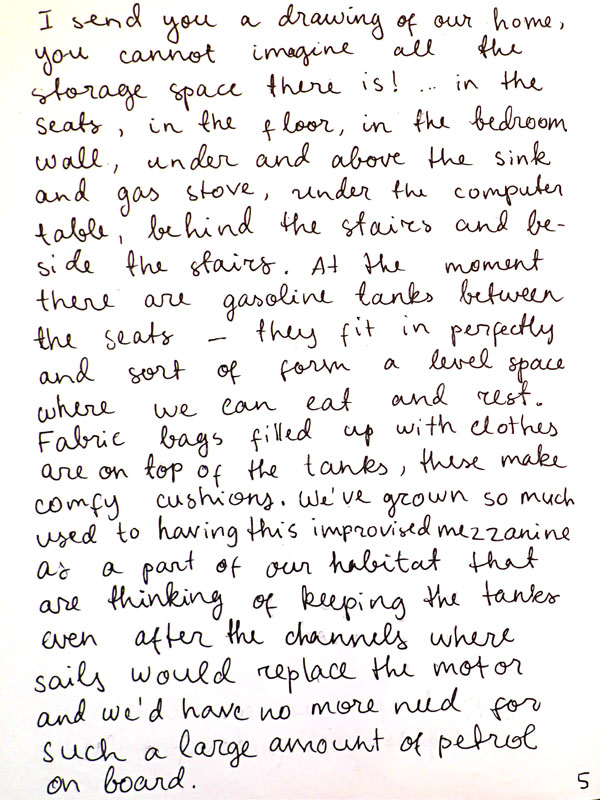 I send you a drawing of our home,
you cannot imagine all the
storage space there is! ... in the
seats, in the floor, in the bedroom
wall, under and above the sink
and gas stove, under the computer
table, behind the stairs and be-
side the stairs. At the moment
there are gasoline tanks between
the seats – they fit in perfectly
and sort of form a level space
where we can eat and rest.
Fabric bags filled up with clothes
are on top of the tanks, these make
comfy cushions. We've grown so much
used to having this improvised mezzanine
as a part of our habitat that
are thinking of keeping the tanks
even after the channels where
sails would replace the motor
and we'd have no more need for
such a large amount of petrol
on board.
5